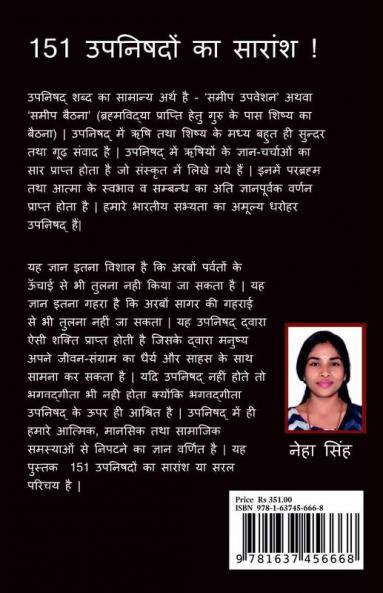 151 उपनिषदों का सारांश !
उपनिषद् शब्द का सामान्य अर्थ है - 'समीप उपवेशन' अथवा
'समीप बैठना' (ब्रह्मविद्या प्राप्ति हेतु गुरु के पास शिष्य का
बैठना) | उपनिषद् में ऋषि तथा शिष्य के मध्य बहुत ही सुन्दर
तथा गूढ़ संवाद है | उपनिषद् में ऋषियों के ज्ञान-चर्चाओं का
सार प्राप्त होता है जो संस्कृत में लिखे गये हैं | इनमें परब्रह्म
तथा आत्मा के स्वभाव व सम्बन्ध का अति ज्ञानपूर्वक वर्णन
प्राप्त होता है | हमारे भारतीय सभ्यता का अमूल्य धरोहर
उपनिषद् हैं|
यह ज्ञान इतना विशाल है कि अरबों पर्वतों के
ऊँचाई से भी तुलना नही किया जा सकता है | यह
ज्ञान इतना गहरा है कि अरबों सागर की गहराई
से भी तुलना नहीं जा सकता | यह उपनिषद् द्वारा
ऐसी शक्ति प्राप्त होती है जिसके द्वारा मनुष्य
अपने जीवन-संग्राम का धैर्य और साहस के साथ
सामना कर सकता है | यदि उपनिषद् नहीं होते तो
भगवद्गीता भी नही होता क्योंकि भगवद्गीता
उपनिषद के ऊपर ही आश्रित है | उपनिषद् में ही
हमारे आत्मिक, मानसिक तथा सामाजिक
समस्याओं से निपटने का ज्ञान वर्णित है | यह
पुस्तक 151 उपनिषदों का सारांश या सरल
परिचय है |
नेहा सिंह
Price Rs 351.00
ISBN 978-1-63745-666-8
9 781637 456668